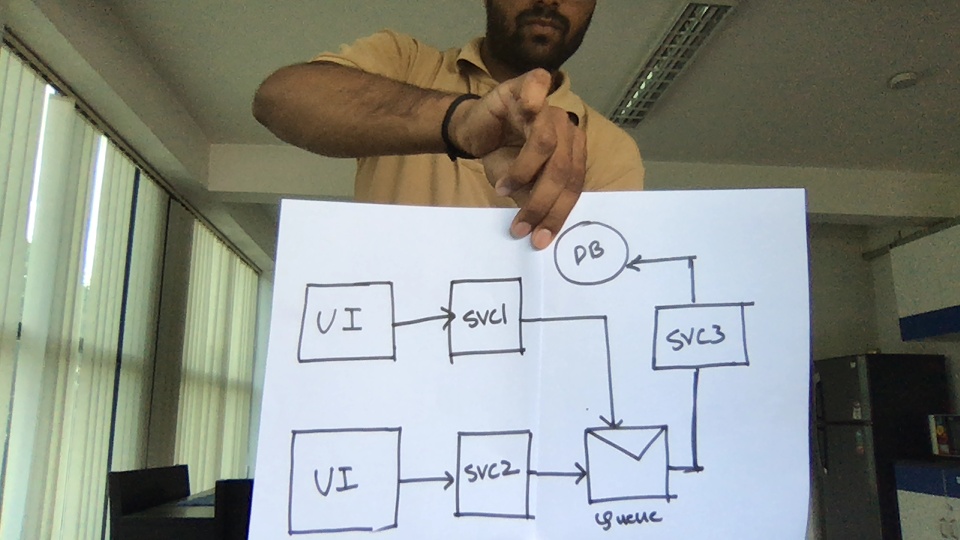 DB
UI
SVC1
SVC3
UI
SVC2
Queue